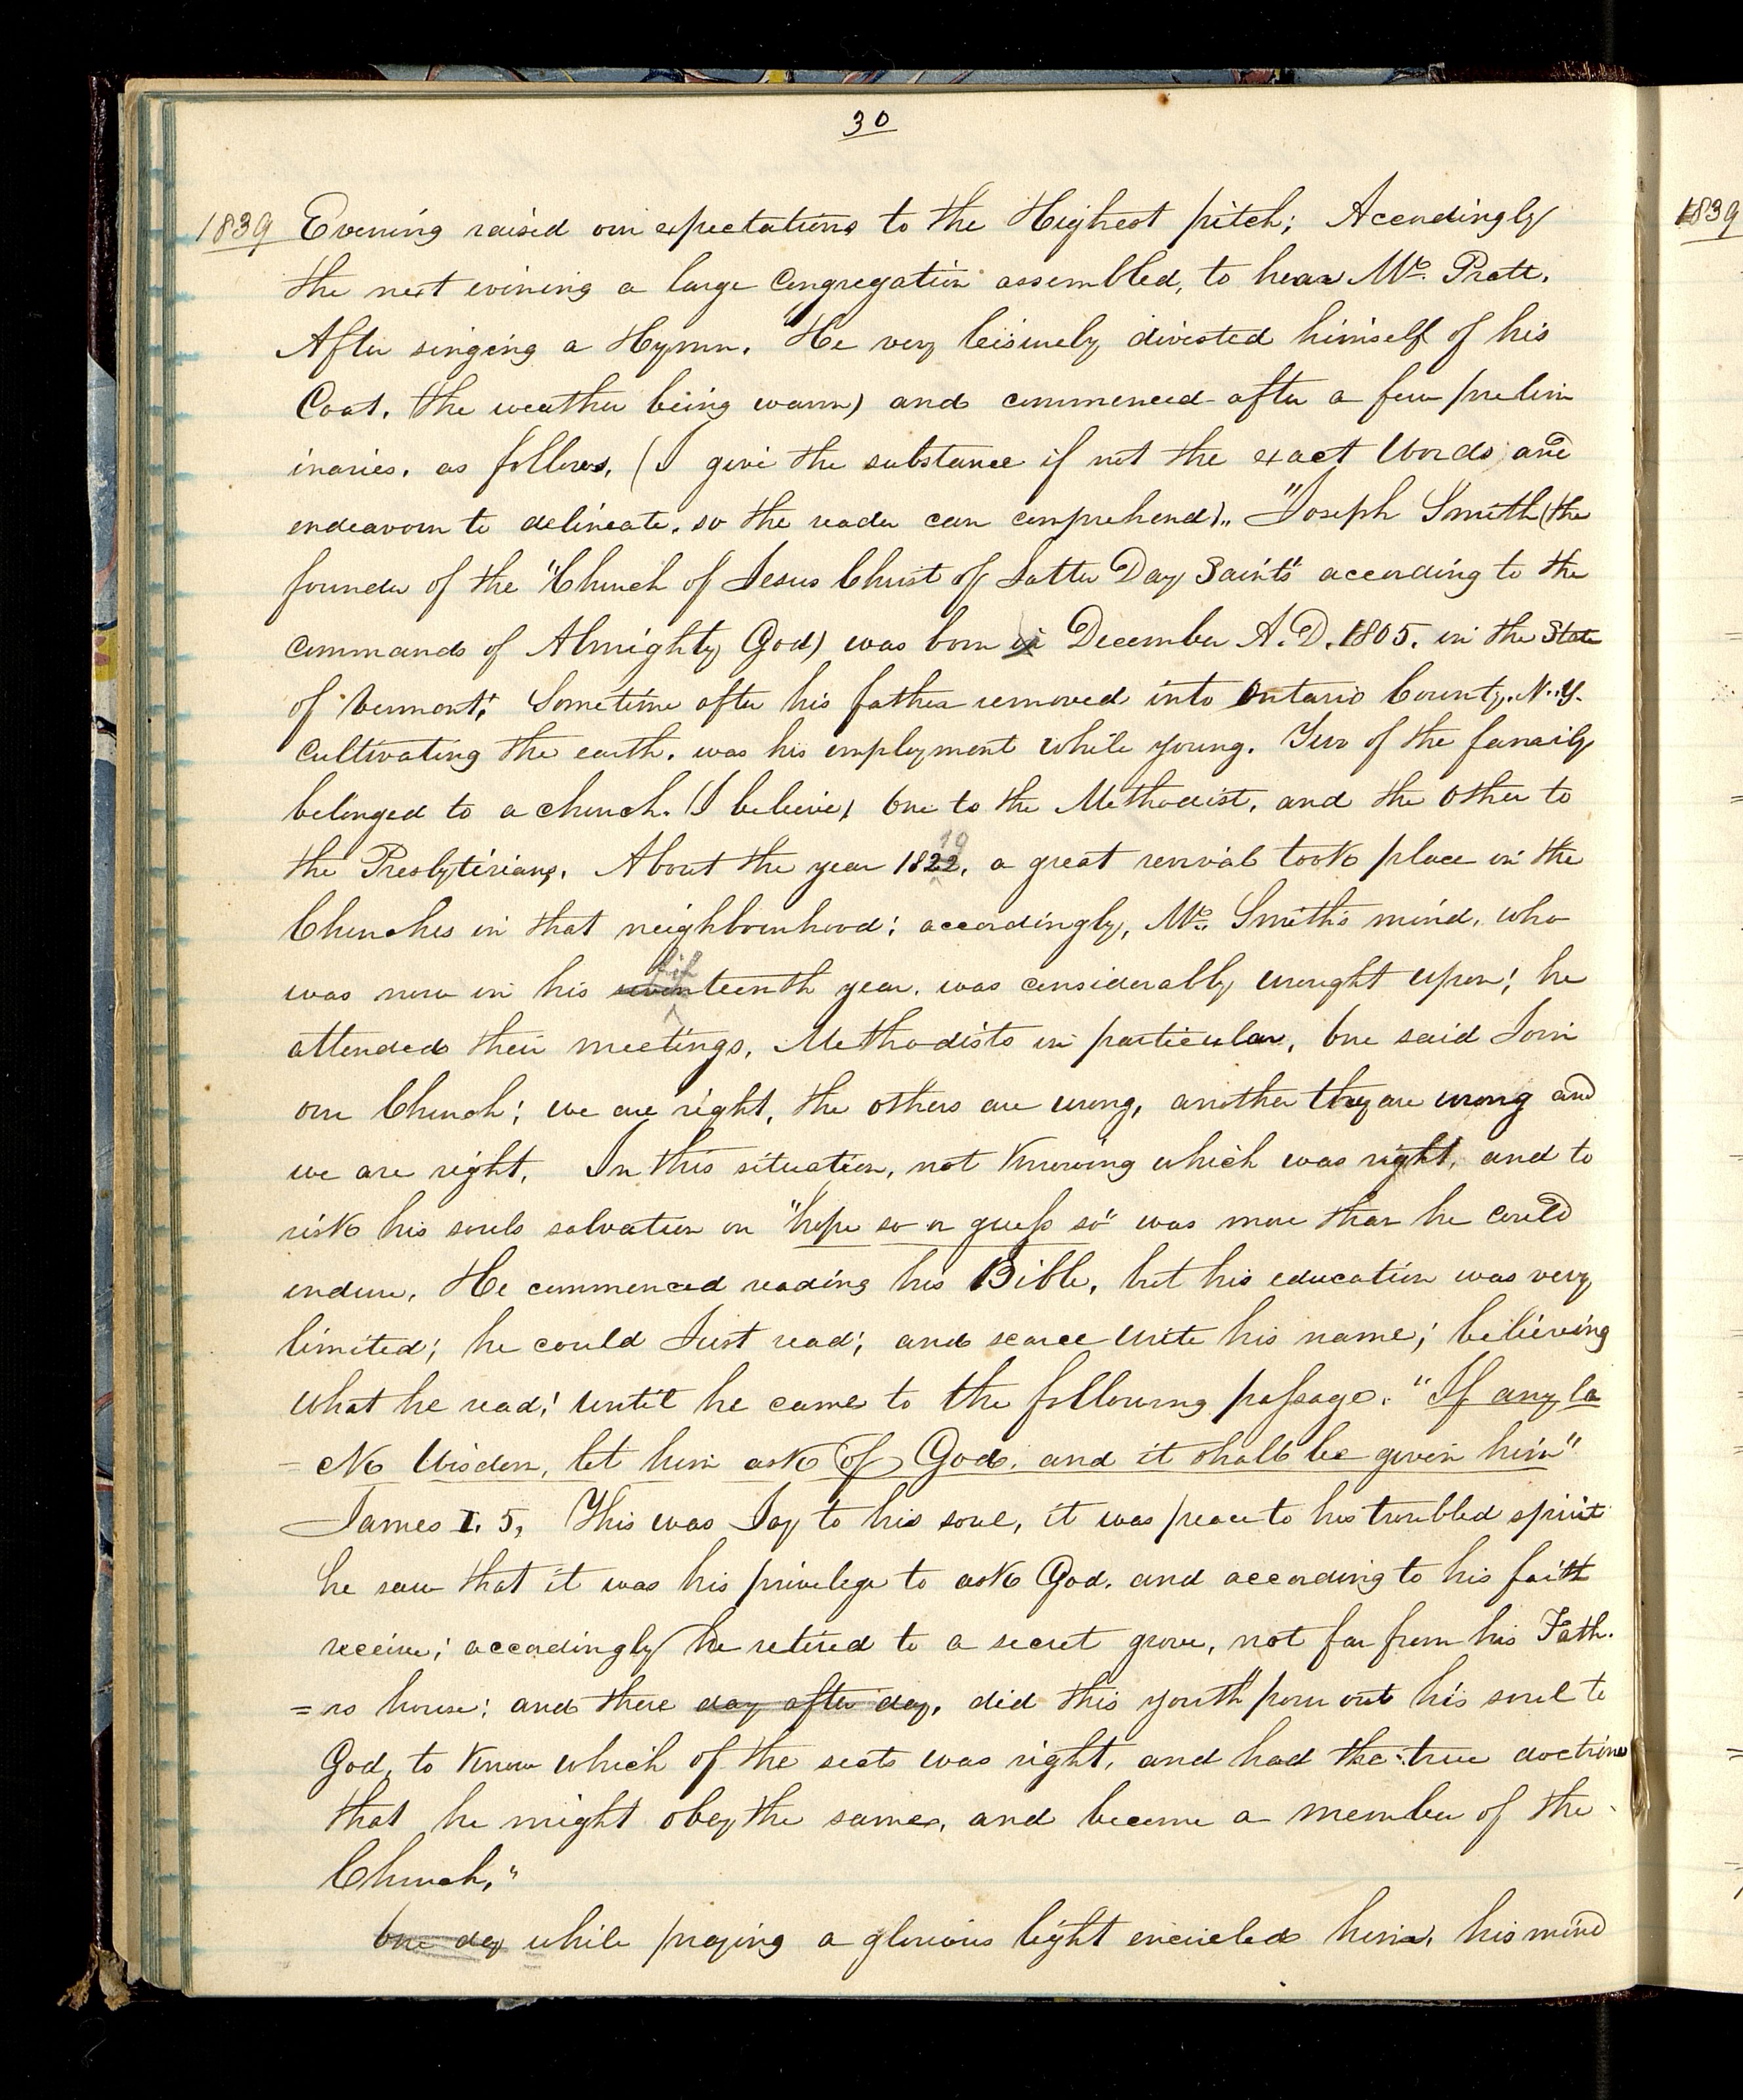 30
1839 Evening raised our expectations to the Highest pitch; Accordingly
the next evining a large Congregation assembled, to hear Mr. Pratt.
After singing a Hymn. He very leisurely divested himself of his
Coat. the weather being warm) and commenced after a few prelim
inaries. as follows. (I give the substance if not the exact Words and
endeavour to delineate. so the reader can comprehend).. "Joseph Smith (the
founder of the "Church of Jesus Christ of Latter Day Saints" according to the
commands of Almighty God) was born in December A.D. 1805. in the State
of Vermont; Sometime after his father removed into Ontario County. N.Y.
Cultivating the earth. was his employment while young. Two of the family
belonged to a church. (I believe) One to the Methodist. and the Other to
the Presbyterians. About the year 1822 19. a great revival took place in the
Churches in that neighbourhood; accordingly, Mr. Smith's mind. who
was now in his seventeenth fif year. was considerably wrought upon; he
attended their meetings. Methodists in particular, One said Join
our Church; we are right, the others are wrong, another they are wrong and
we are right. In this situation, not Knowing which was right, and to
risk his souls salvation on "hope so or guess so" was more than he could
endure. He commenced reading his Bible, but his education was very
limited; he could Just read; and scarce write his name; believing
what he read; until he came to the following passage. "If any la
= ck Wisdom, let him ask of God. and it shall be given him"
James I. 5, This was Joy to his soul, it was peace to his troubled spirit
he saw that it was his privilege to ask God. and according to his faith
receive; accordingly he retired to a secret grove, not far from his Fath.
= rs house; and there day after day, did this youth pour out his soul to
God, to Know which of the sects was right, and had the true doctrine
that he might obey the same, and become a member of the
Church."
One day while praying a glorious light encircled him, his mind
1839